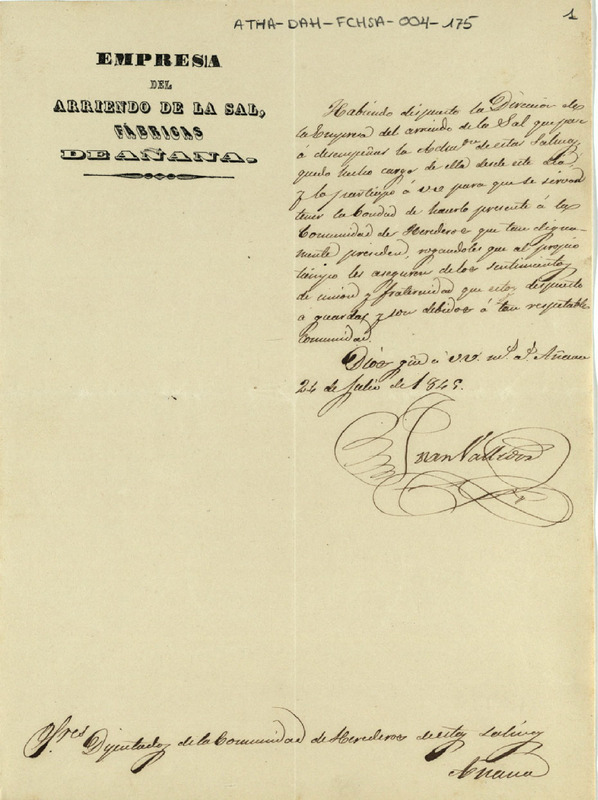 ATHA-DAH-FCHSA-004-175
1
EMPRESA
DEL
ARRIENDO DE LA SAL,
FÁBRICAS
DE AÑANA.
Habiendo dispuesto la Direccion de
la Empresa del arriendo de la Sal que pase
á desempeñar la Admon de estas Salinas,
quedo hecho cargo de ella desde este dia
y lo participo á VV para que se sirvan
tener la bondad de hacerlo presente á la
Comunidad de Herederos que tan digna-
mente presiden, rogandoles que al propio
tiempo les aseguren de los sentimientos
de union y fraternidad que estoy dispuesto
a guardar y son debidos á tan respetable
Comunidad.
Dios gũe á VV. ms. as. Añana
24 de Julio de 184
Juan
Sres Diputados de la Comunidad de Herederos de estas salinas
Añana